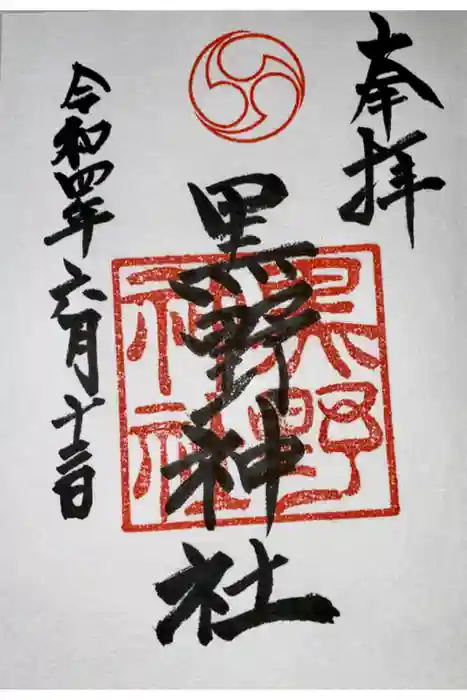 奉拝
黒野神社
黒野
神社
令和四年六月十二日